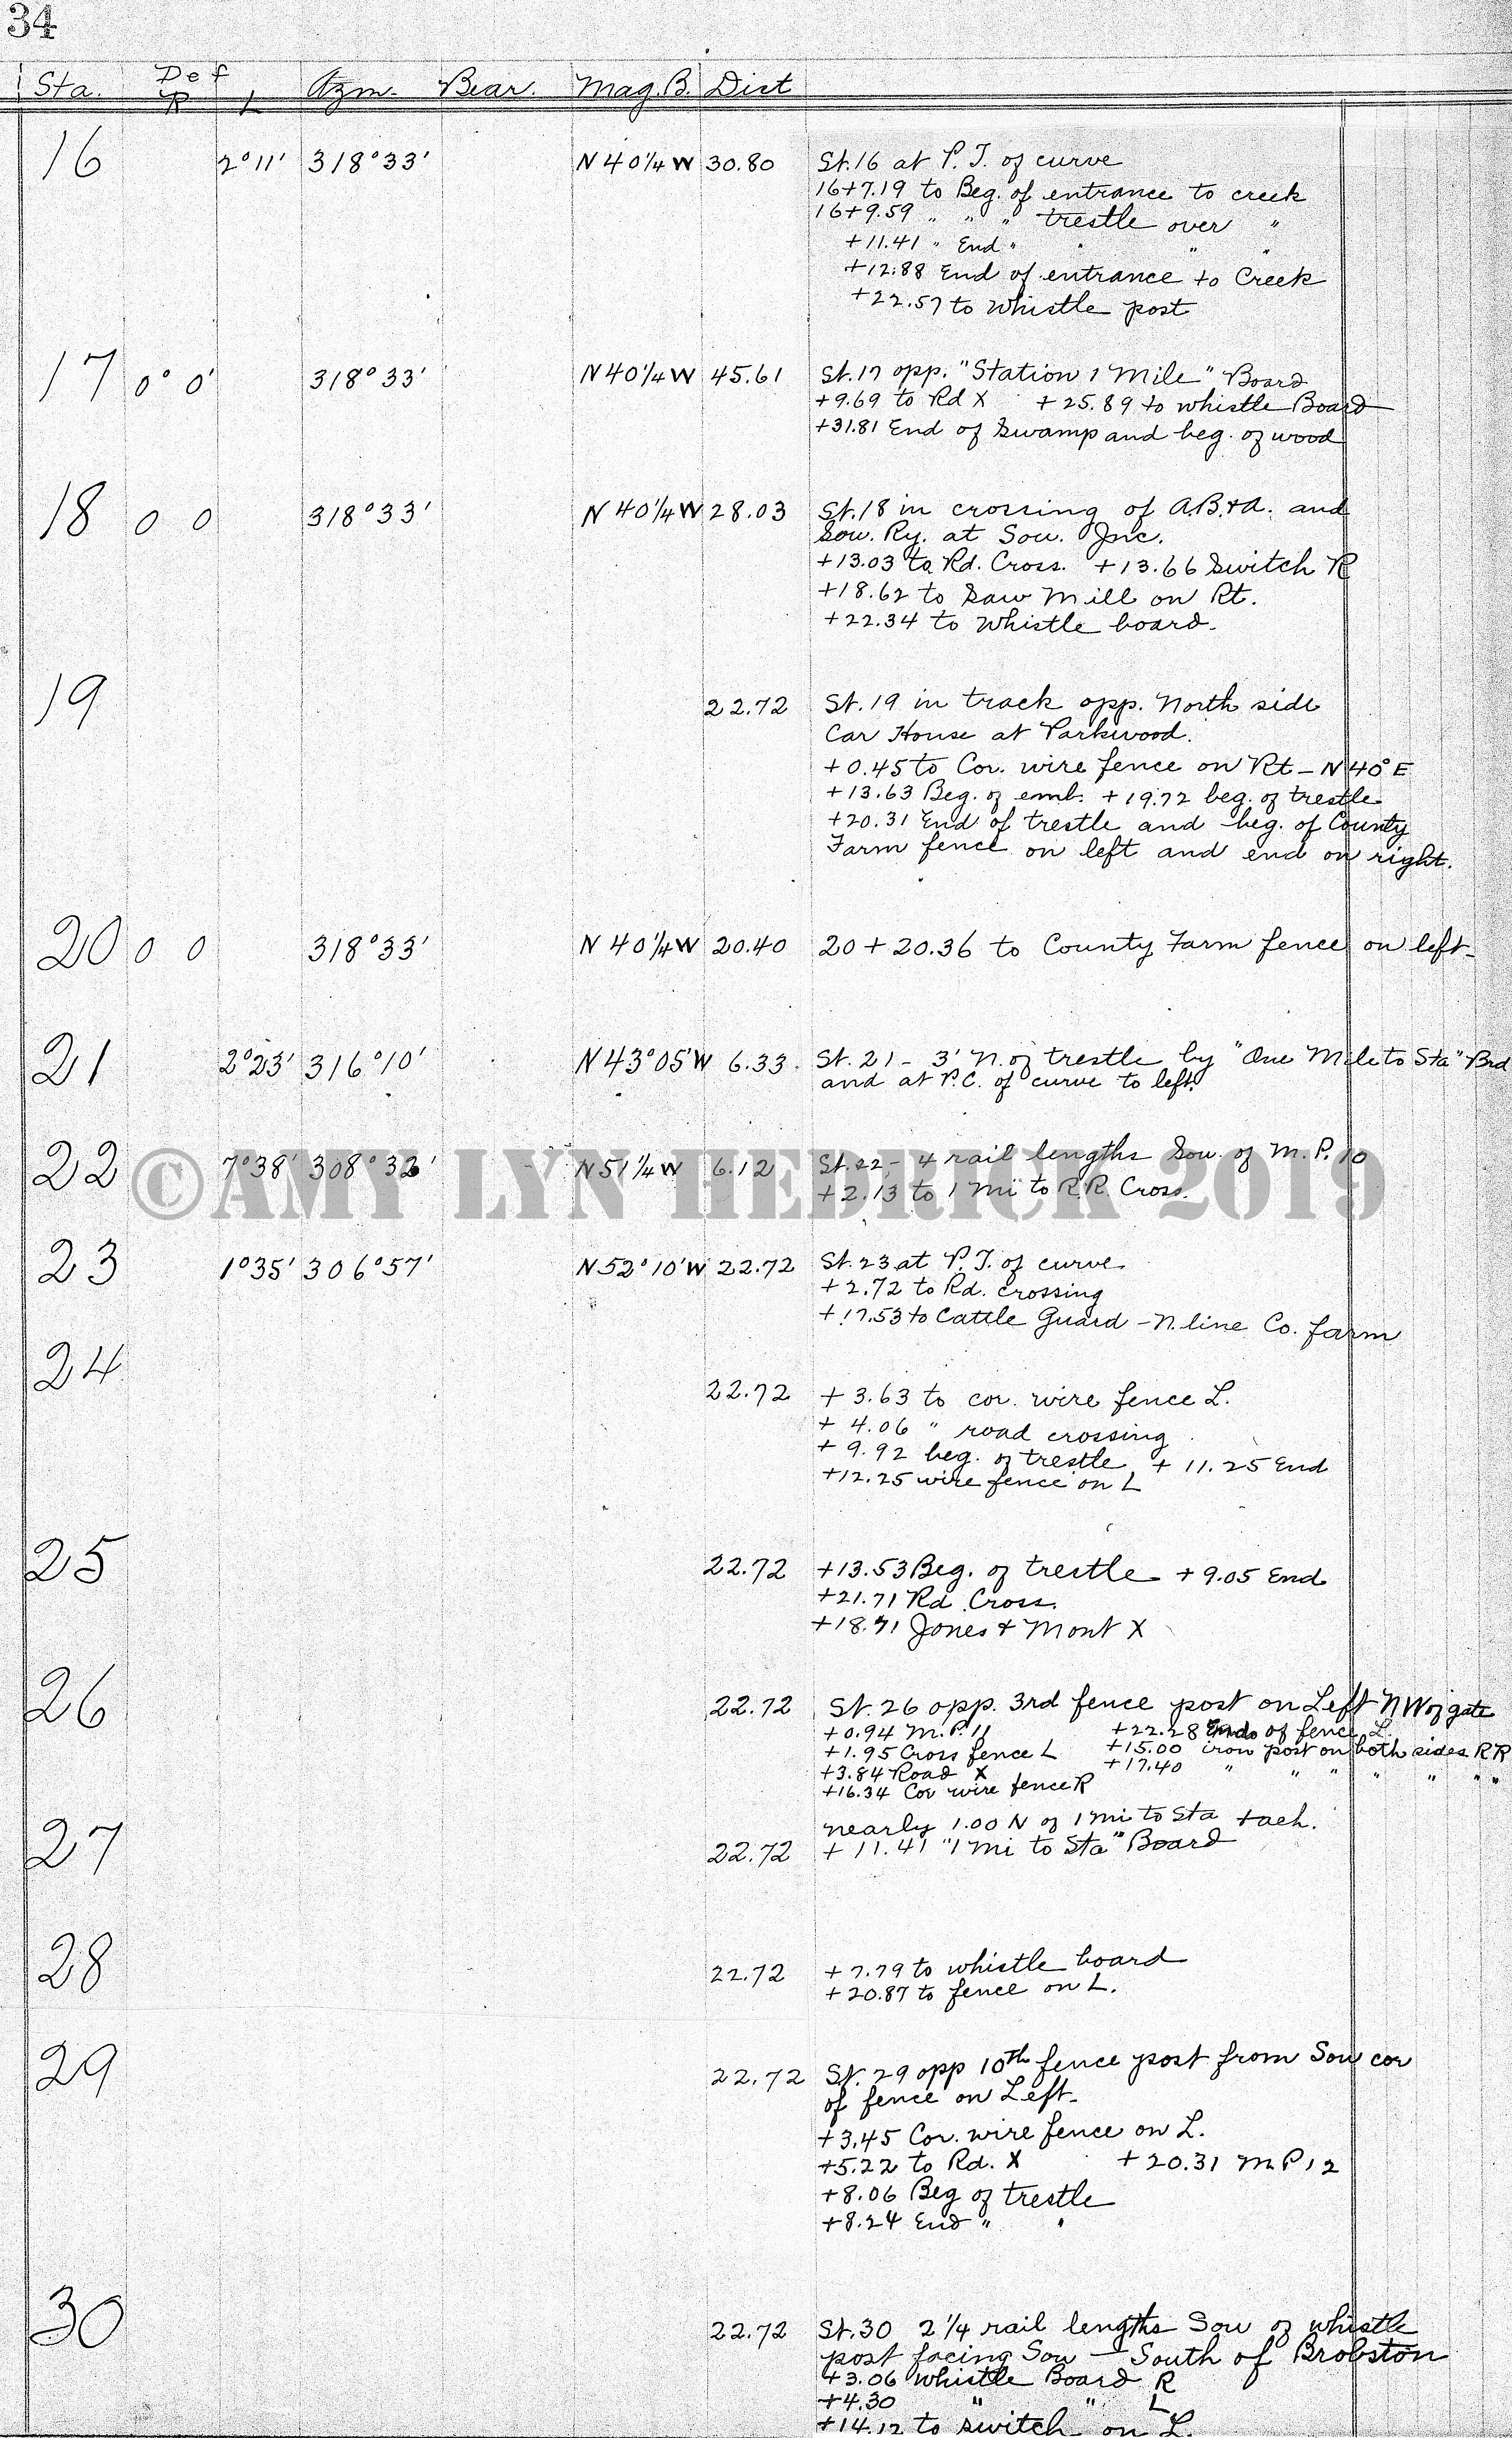 34
Sta. Def R L Azm. Bear. Mag. B. Dist
16 2°11' 318°33' N 40¼ W 30.80 St. 16 at P. T. of curve
16+7.19 to Beg. of entrance to creek
16+9.59 " " " trestle over "
+11.41 " End " " " "
+12.88 End of entrance to Creek
+22.57 to Whistle post
17 0° 0' 318°33' N 40¼ W 45.61 St. 17 opp. "Station 1 Mile" Board
+9.69 to Rd X +25.89 to whistle Board
+31.81 End of Swamp and beg. of wood
18 0 0 318°33' N 40¼ W 28.03 St. 18 in crossing of A.B.+A. and
Sou. Ry. at Sou. Jnc.
+13.03 to Rd. Cross. +13.66 Switch R
+18.62 to Saw Mill on Rt.
+22.34 to Whistle board.
19 22.72 St. 19 in track opp. North side
Car House at Parkwood.
+0.45 to Cor. wire fence on Rt - N 40° E
+13.63 Beg. of emb. +19.72 beg. of trestle
+20.31 End of trestle and beg. of County
Farm fence on left and end on right.
20 0 0 318°33' N 40¼ W 20.40 20 + 20.36 to County Farm fence on left-
21 2°23' 316°10' N 43°05' W 6.33. St. 21 - 3' N. of trestle by "One Mile to Sta" Brd
and at P.C. of curve to left.
22 7°38' 308°32' N 51¼ W 6.12 St. 22 - 4 rail lengths Sou. of M. P. 10
+2.13 to 1 Mi to R.R. Cross.
©AMY LYN HEDRICK 2019
23 1°35' 306°57' N 52°10' W 22.72 St. 23 at P. T. of curve
+2.72 to Rd. crossing
+17.53 to Cattle Guard - N. line Co. farm
24 22.72 + 3.63 to cor. wire fence L.
+ 4.06 " road crossing
+ 9.92 beg. of trestle + 11.25 End
+12.25 wire fence on L
25 22.72 +13.53 Beg. of trestle +9.05 End
+21.71 Rd Cross.
+18.71 Jones + Mont X
26 22.72 St. 26 opp. 3rd fence post on Left NW of gate
+0.94 M.P. 11 +22.28 End of fence L.
+1.95 Cross fence L +15.00 iron post on both sides RR
+3.84 Road X +17.40 " " " " " " "
+16.34 Cor wire fence R
nearly 1.00 N of 1 Mi to Sta
27 22.72 + 11.41 "1 Mi to Sta" Board
28 22.72 +7.79 to whistle board
+20.87 to fence on L.
29 22.72 St. 29 opp 10th fence post from Sou cor
of fence on Left-
+3.45 Cor. wire fence on L.
+5.22 to Rd. X +20.31 M P 12
+8.06 Beg of trestle
+8.24 End " "
30 22.72 St. 30 2¼ rail lengths Sou of whistle
post facing Sou - South of Brobston
+3.06 Whistle Board R
+4.30 " " L
+14.12 to switch on L.